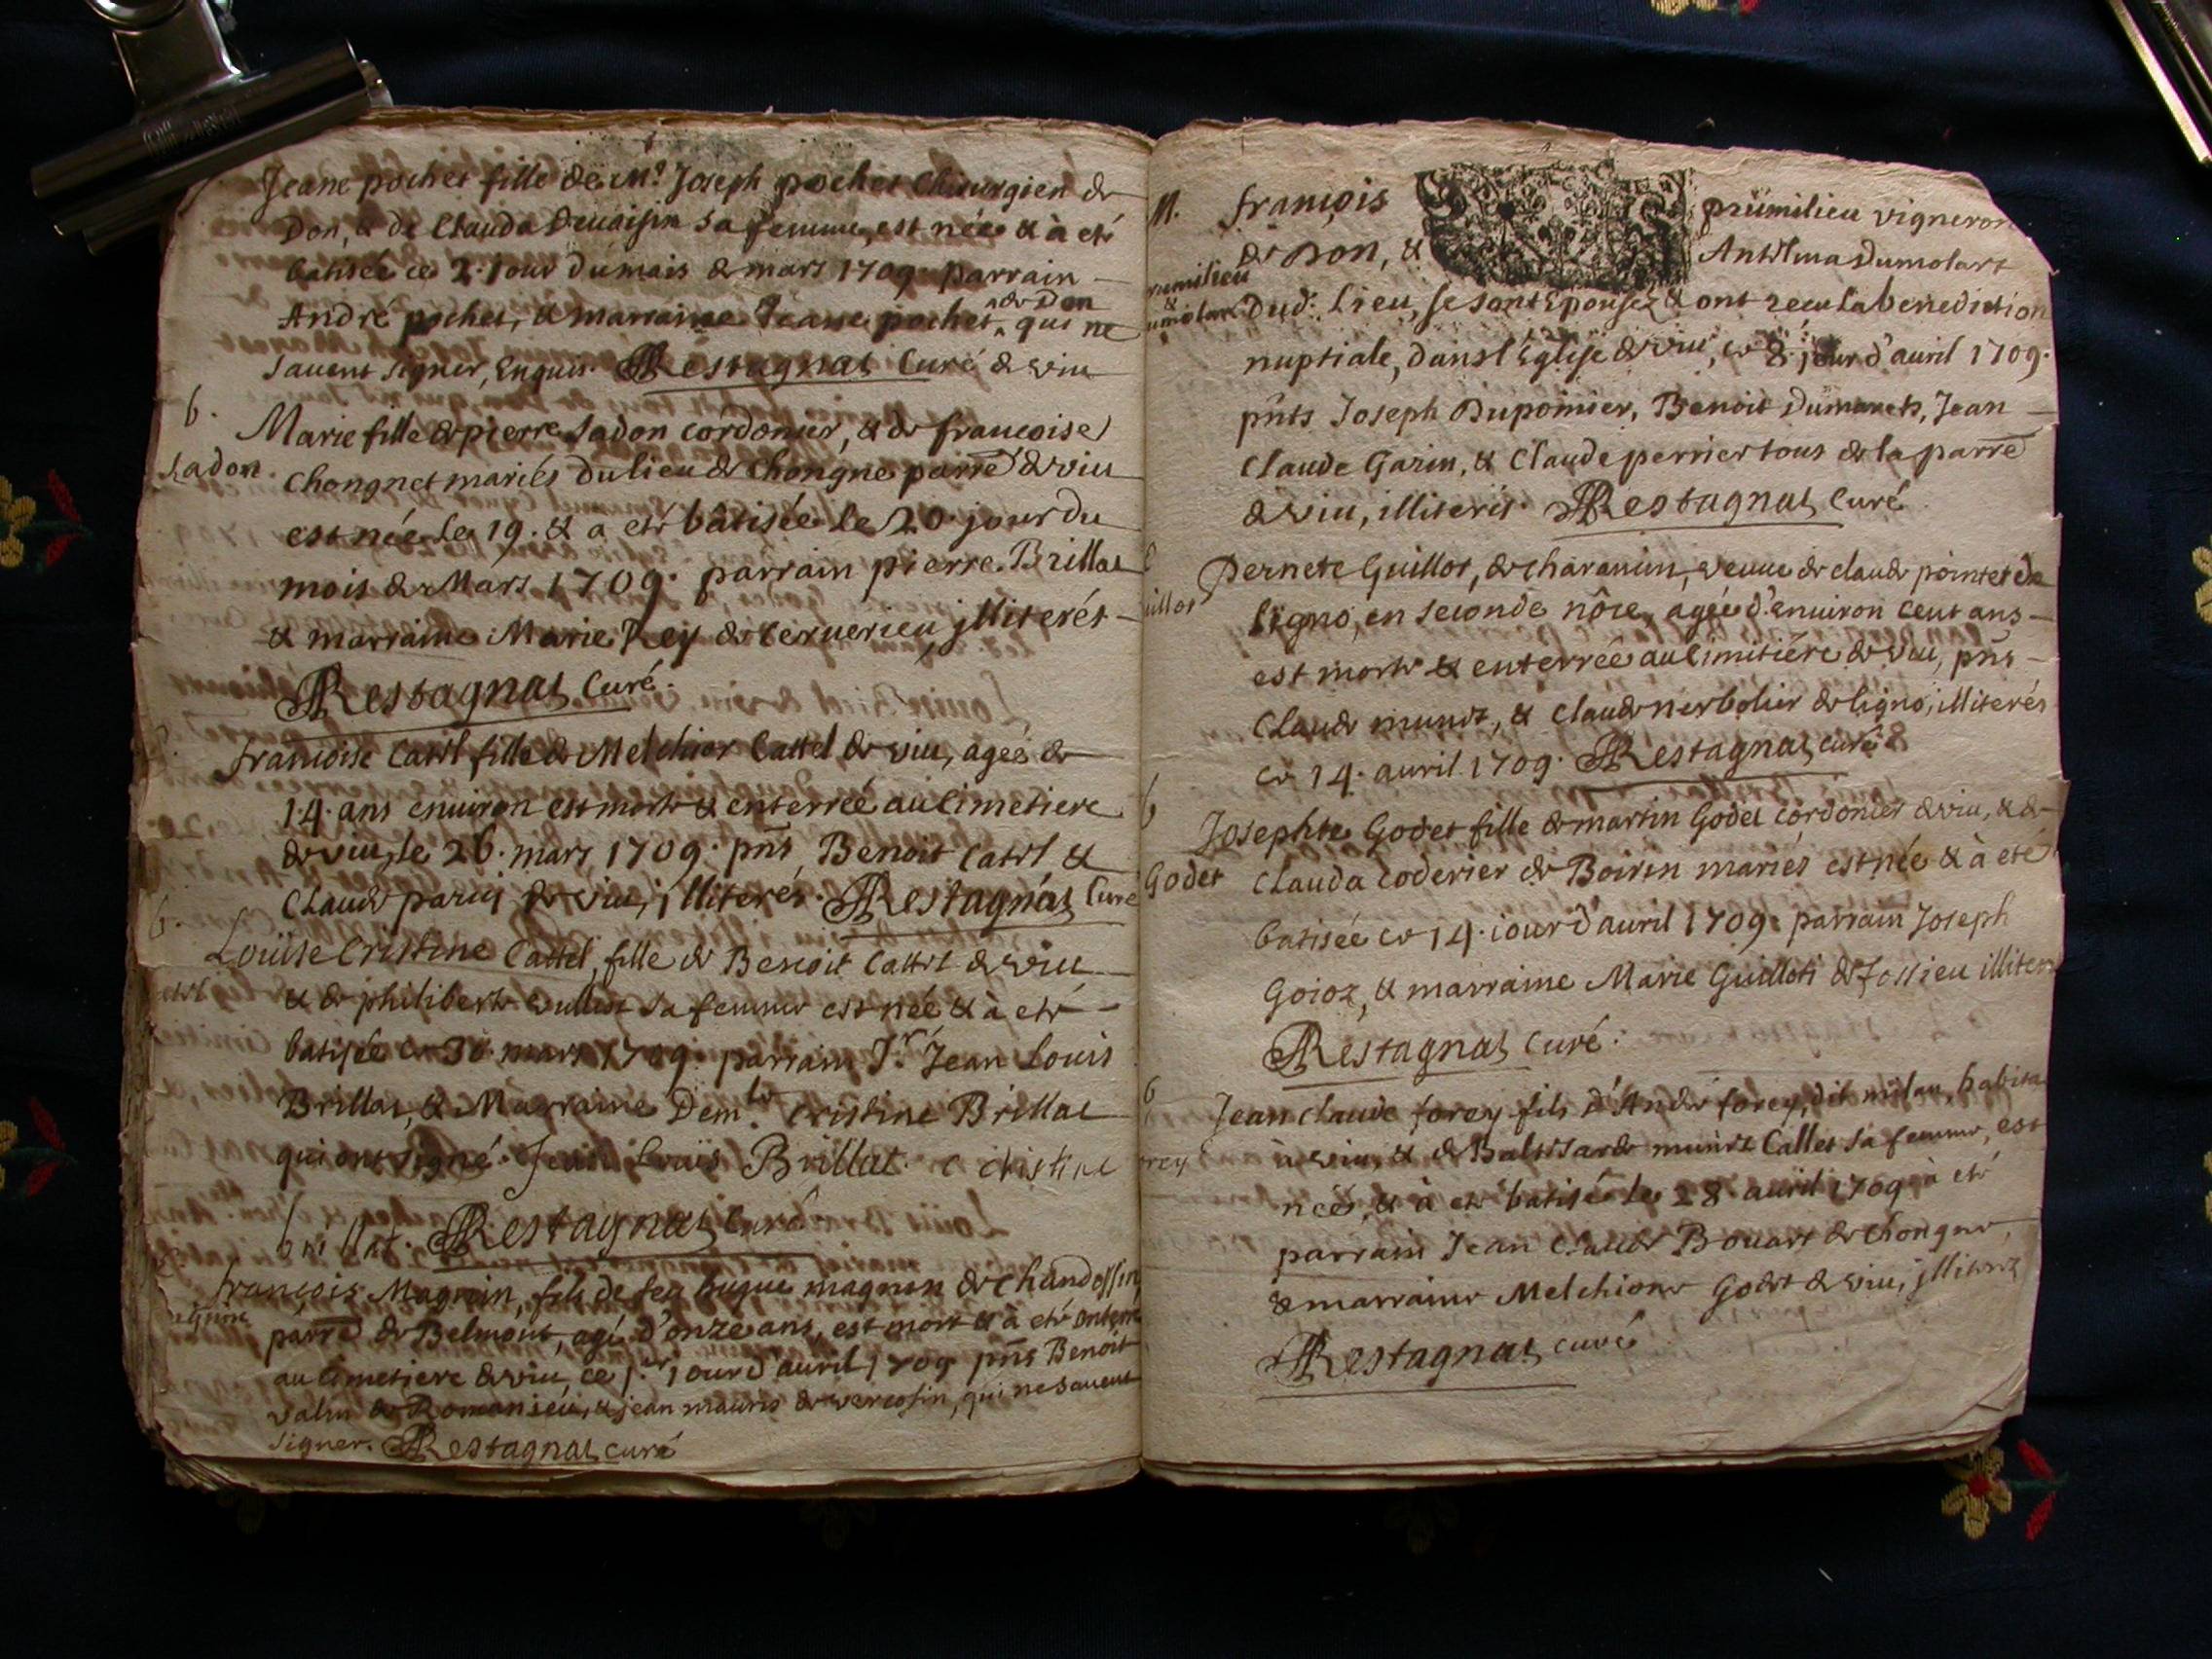 Jeane pochet fille de Mr. Joseph pochet Chirurgien de
Don, & de Clauda Deuaisin sa femme, est née & à eté
batisée ce 2. jour du mois de mars 1709. parrain
André pochet, & marraine Jeane pochet, de Don qui ne
sauent signer, Enquis. Restagnat Curé de viu
b.
Marie fille de pierre Sadon cordonier, & de francoise
Sadon.
Chongnet mariés du lieu de Chongne parre de viu
est née le 19. & a eté bâtisée le 20. jour du
mois de Mars 1709. parrain pierre Brillat
& marraine Marie Rey de Ceruerieu, jlliterés
Restagnat Curé.
francoise Cattel fille de Melchior Cattel de viu, ageé de
14. ans enuiron est morte & enterreé au Cimetiere
de viu, le 26. mars 1709. pñs Benoit Cattel &
Claude de viu, jlliterés. Restagnat Curé
b.
Louïse Cristine Cattel, fille de Benoit Cattel de viu
& de philiberte sa femme est née & à eté
batisée ce 30 mars 1709. parrain Sr. Jean Louis
Brillat, & Marraine Demlle. Cristine Brillat
qui ont signé. Jean Louis Brillat. c chistine
brillat. Restagnat Curé
françois Magnin, fils de feu hugue magnin de Chandossin,
parre de Belmont, agé d'onze ans, est mort & à eté enterré
au Cimetiere de viu, ce 1er. jour d'auril 1709 pñs Benoit
de Romanieu, & jean mauris de vercosin, qui ne sauent
signer. Restagnat curé
M. françois prümilieu vigneron
de Don, & Anthelma Dumolart
rumilieu
&
umolart
Dud. Lieu, se sont Epousez & ont receu La benediction
nuptiale, dans l'Église de viu, ce 8. jour d'auril 1709.
pñts Joseph Dupomier, Benoit Dumarets, Jean
Claude Garin, & Claude perrier tous de la parre
de viu, illiteris. Restagnat Curé
Pernete Guillot, de charancin, veuue de claude pointet de
uillot
ligno, en seconde nôce, ageé d'enuiron cent ans
est morte & enterrée au Cimitiére de viu, pñs
Claude munet, & Claude nerbolier de ligno, illiterés
ce 14. auril 1709. Restagnat curé
b
Josephte Godet fille de martin Godet cordonier de viu, & de
Godet
Clauda coderier de Boirin mariés est née & à eté
batisée ce 14. iour d'auril 1709. parrain Joseph
Goioz, & marraine Marie Guilloti de fossieu illiter
Restagnat curé.
b
Jean claude forey fils d'André forey, dit milan, habita
rey
à viu, & de Baltesarde munet Callet sa femme, est
née, & à eté batisée le 28 auril 1709 à eté
parrain Jean Claude Bouart de Chongne,
& marraine Melchiore Godet de viu, jlliterez
Restagnat curé